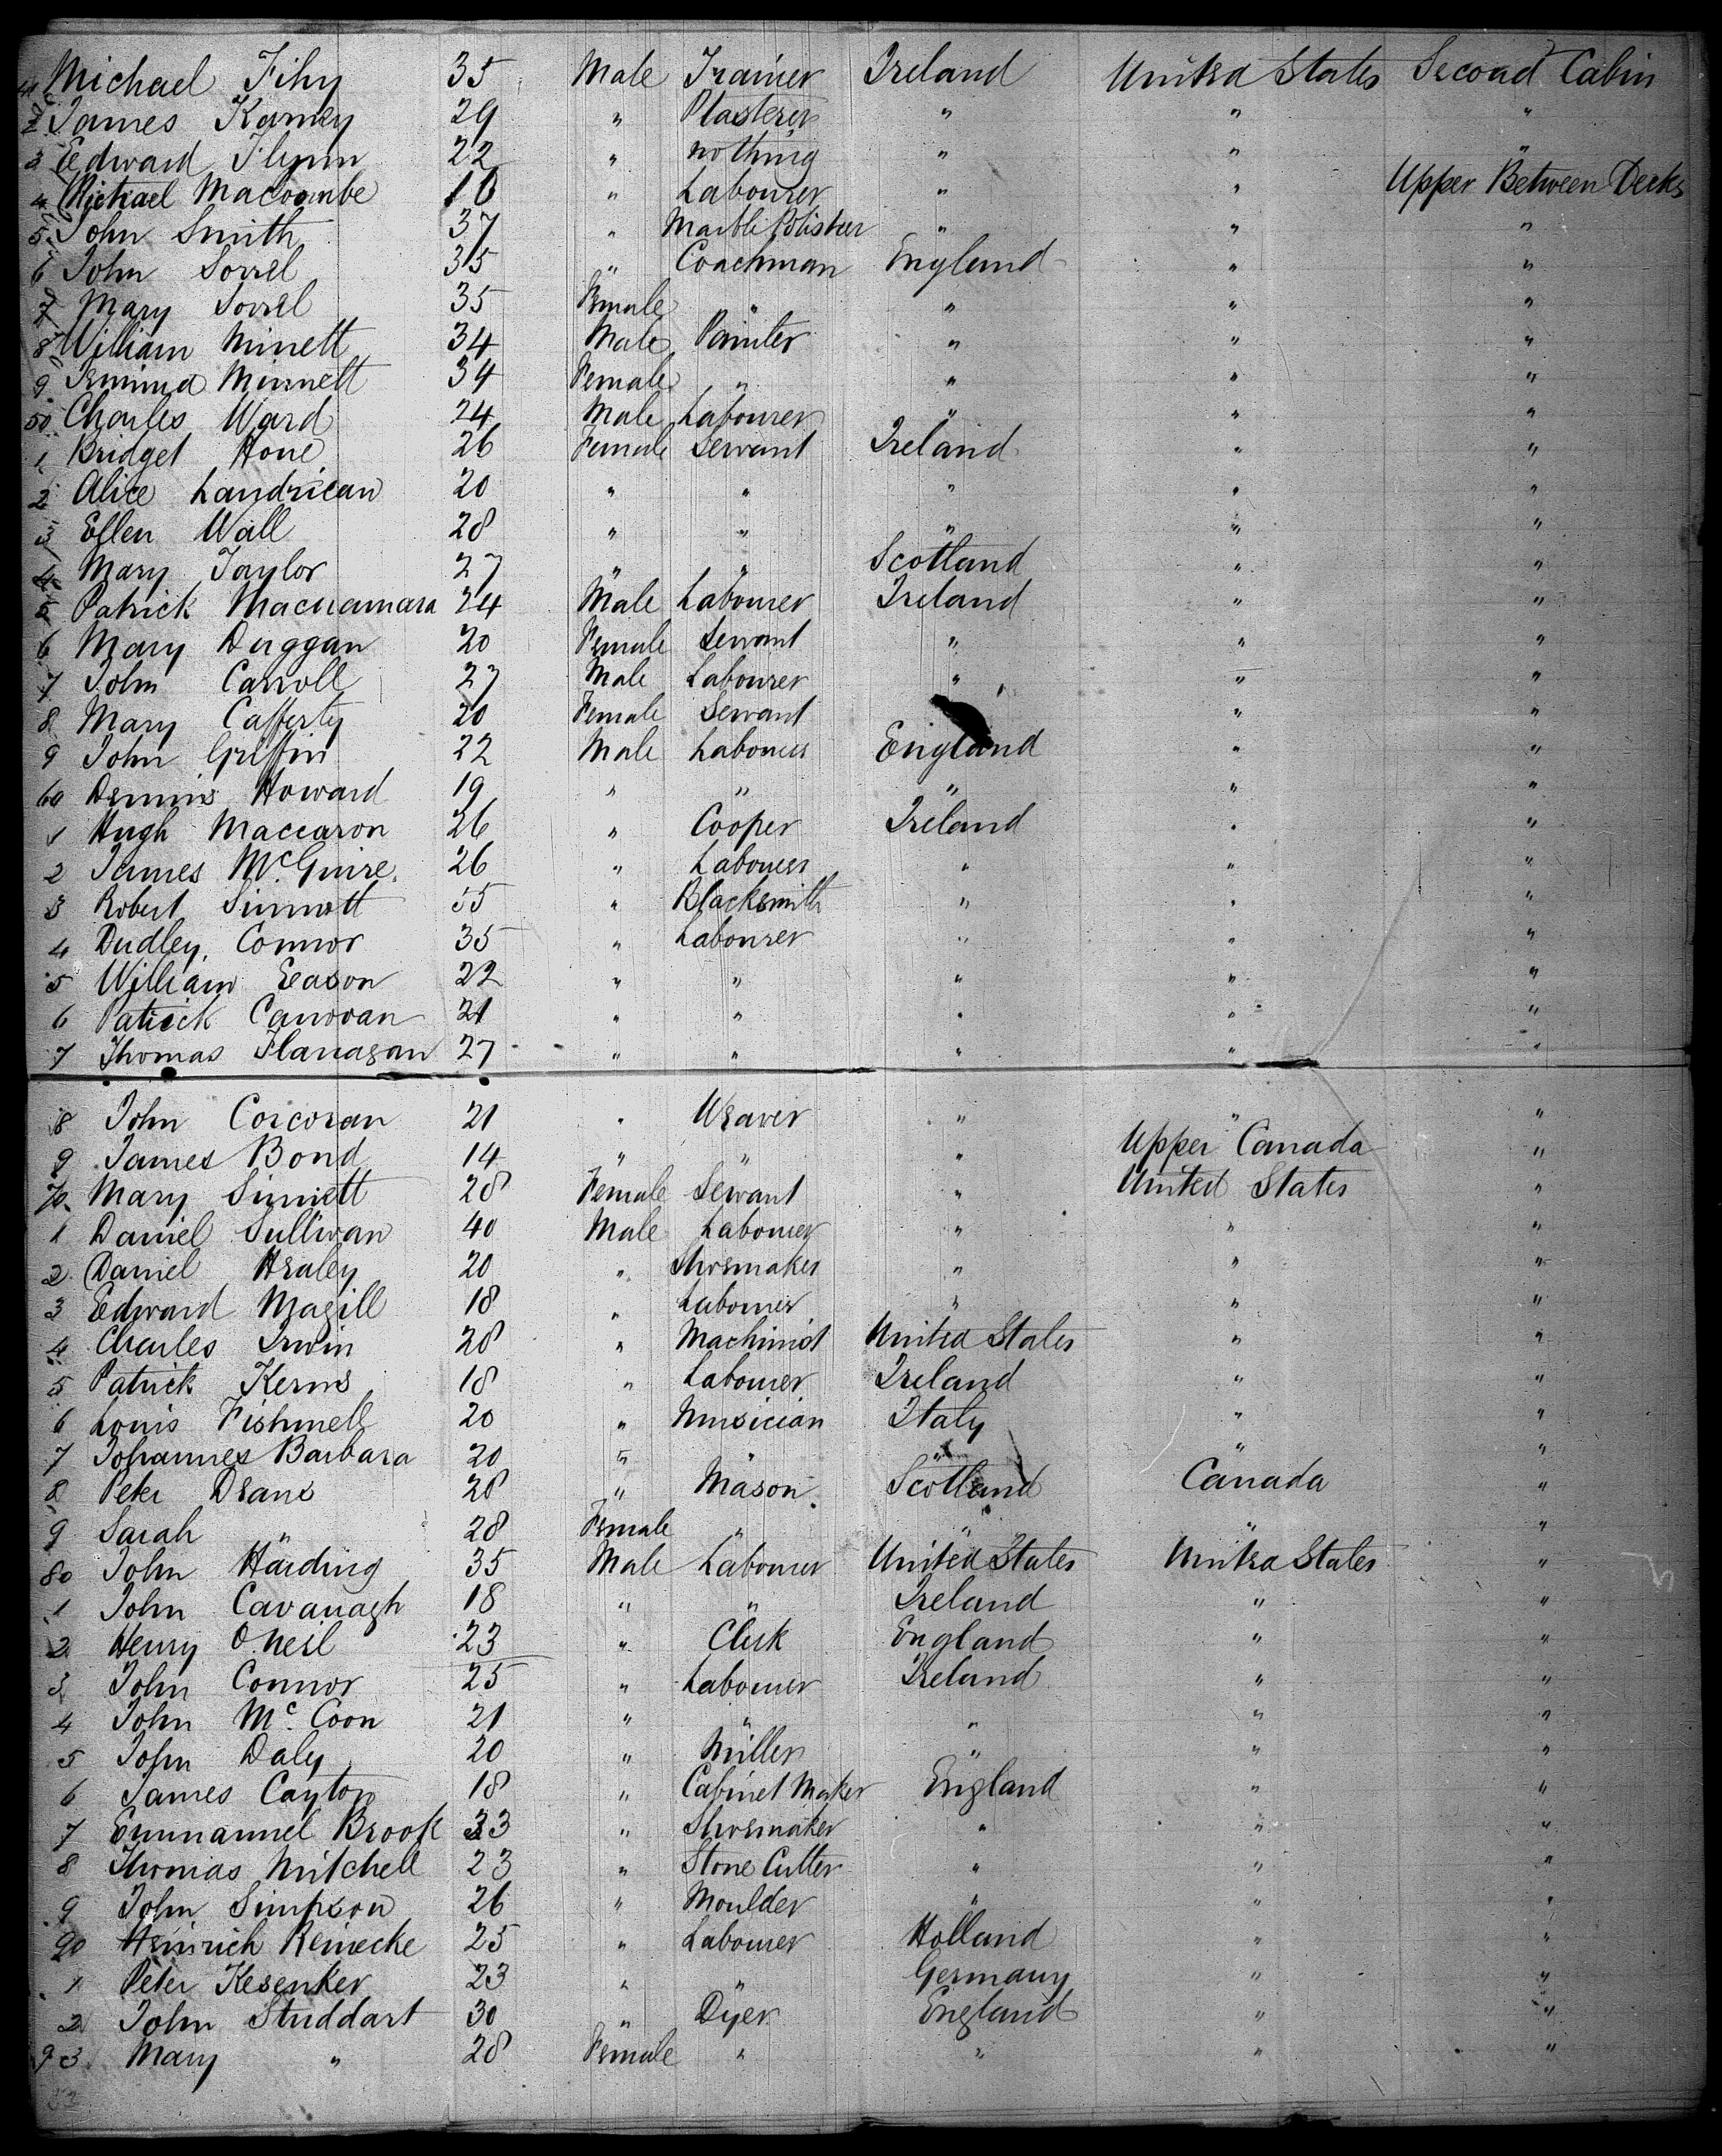 41 Michael Fihy 35 Male Trainer Ireland United States Second Cabin
2 James Karney 29 " Plasterer " " "
3 Edward Flynn 22 " nothing " " "
4 Michael Macoombe 16 " Labourer " " Upper Between Decks
5 John Smith 37 " Marble Polisher " " "
6 John Sorrel 35 " Coachman England " "
7 Mary Sorrel 35 Female " " " "
8 William Minett 34 Male Painter " " "
9 Minnett 34 Female " " " "
50 Charles Ward 24 Male Labourer " " "
1 Bridget Hone 26 Female Servant Ireland " "
2 Alice Landrican 20 " " " " "
3 Ellen Wall 28 " " " " "
4 Mary Taylor 27 " " Scotland " "
5 Patrick Macnamara 24 Male Labourer Ireland " "
6 Mary Duggan 20 Female Servant " " "
7 John Carroll 27 Male Labourer " " "
8 Mary Cafferty 20 Female Servant " "
9 John Griffin 22 Male Labourer England " "
60 Dennis Howard 19 " " " " "
1 Hugh Maccaron 26 " Cooper Ireland " "
2 James McGuire 26 " Labourer " " "
3 Robert Sinnott 55 " Blacksmith " " "
4 Dudley Connor 35 " Labourer " " "
5 William Eason 22 " " " " "
6 Patrick Canovan 21 " " " " "
7 Thomas Flanagan 27 " " " " "
8 John Corcoran 21 " Weaver " " "
9 James Bond 14 " " " Upper Canada "
70 Mary Sinnett 28 Female Servant " United States "
1 Daniel Sullivan 40 Male Labourer " " "
2 Daniel Healey 20 " Shoemaker " " "
3 Edward Magill 18 " Labourer " " "
4 Charles Irwin 28 " Machinist United States " "
5 Patrick Kerns 18 " Labourer Ireland " "
6 Louis Fishnell 20 " Musician Italy " "
7 Johannes Barbara 20 " " " " "
8 Peter Deans 28 " Mason Scotland Canada "
9 Sarah " 28 Female " " " "
80 John Harding 35 Male Labourer United States United States "
1 John Cavanagh 18 " " Ireland " "
2 Henry O'Neil 23 " Clerk England " "
3 John Connor 25 " Labourer Ireland " "
4 John McCoon 21 " " " " "
5 John Daly 20 " Miller " " "
6 James Cayton 18 " Cabinet Maker England " "
7 Emmanuel Brook 33 " Shoemaker " " "
8 Thomas Mitchell 23 " Stone Cutter " " "
9 John Simpson 26 " Moulder " " "
90 Heinrich Reinecke 25 " Labourer Holland " "
1 Peter Kesenker 23 " " Germany " "
2 John Studdart 30 " Dyer England " "
93 Mary " 28 Female " " " "